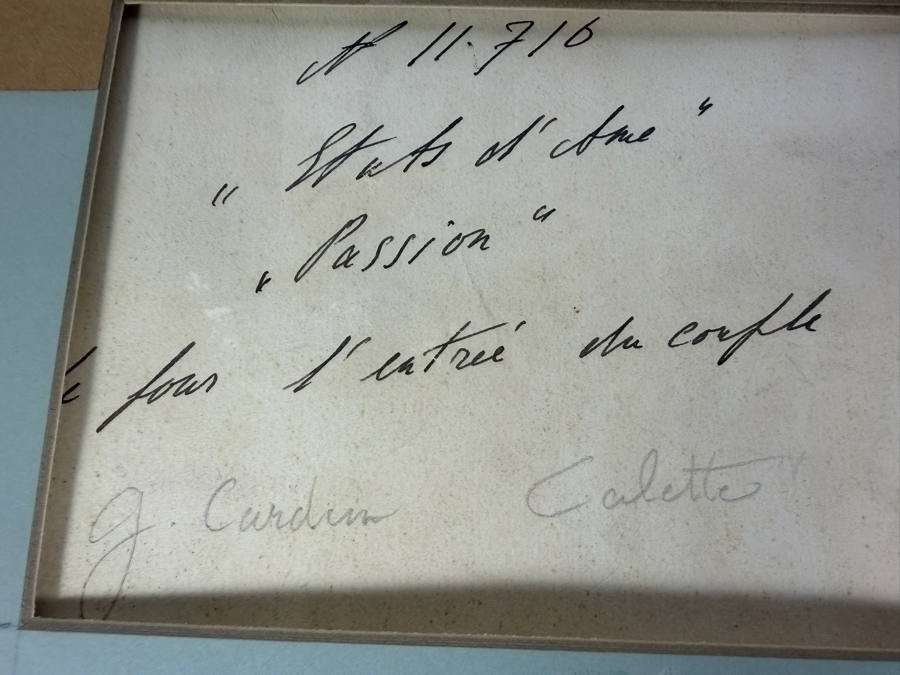 N 11.716
" Etats d'Ame "
" Passion "
pour l'entrée du couple
G. Cardin Colette